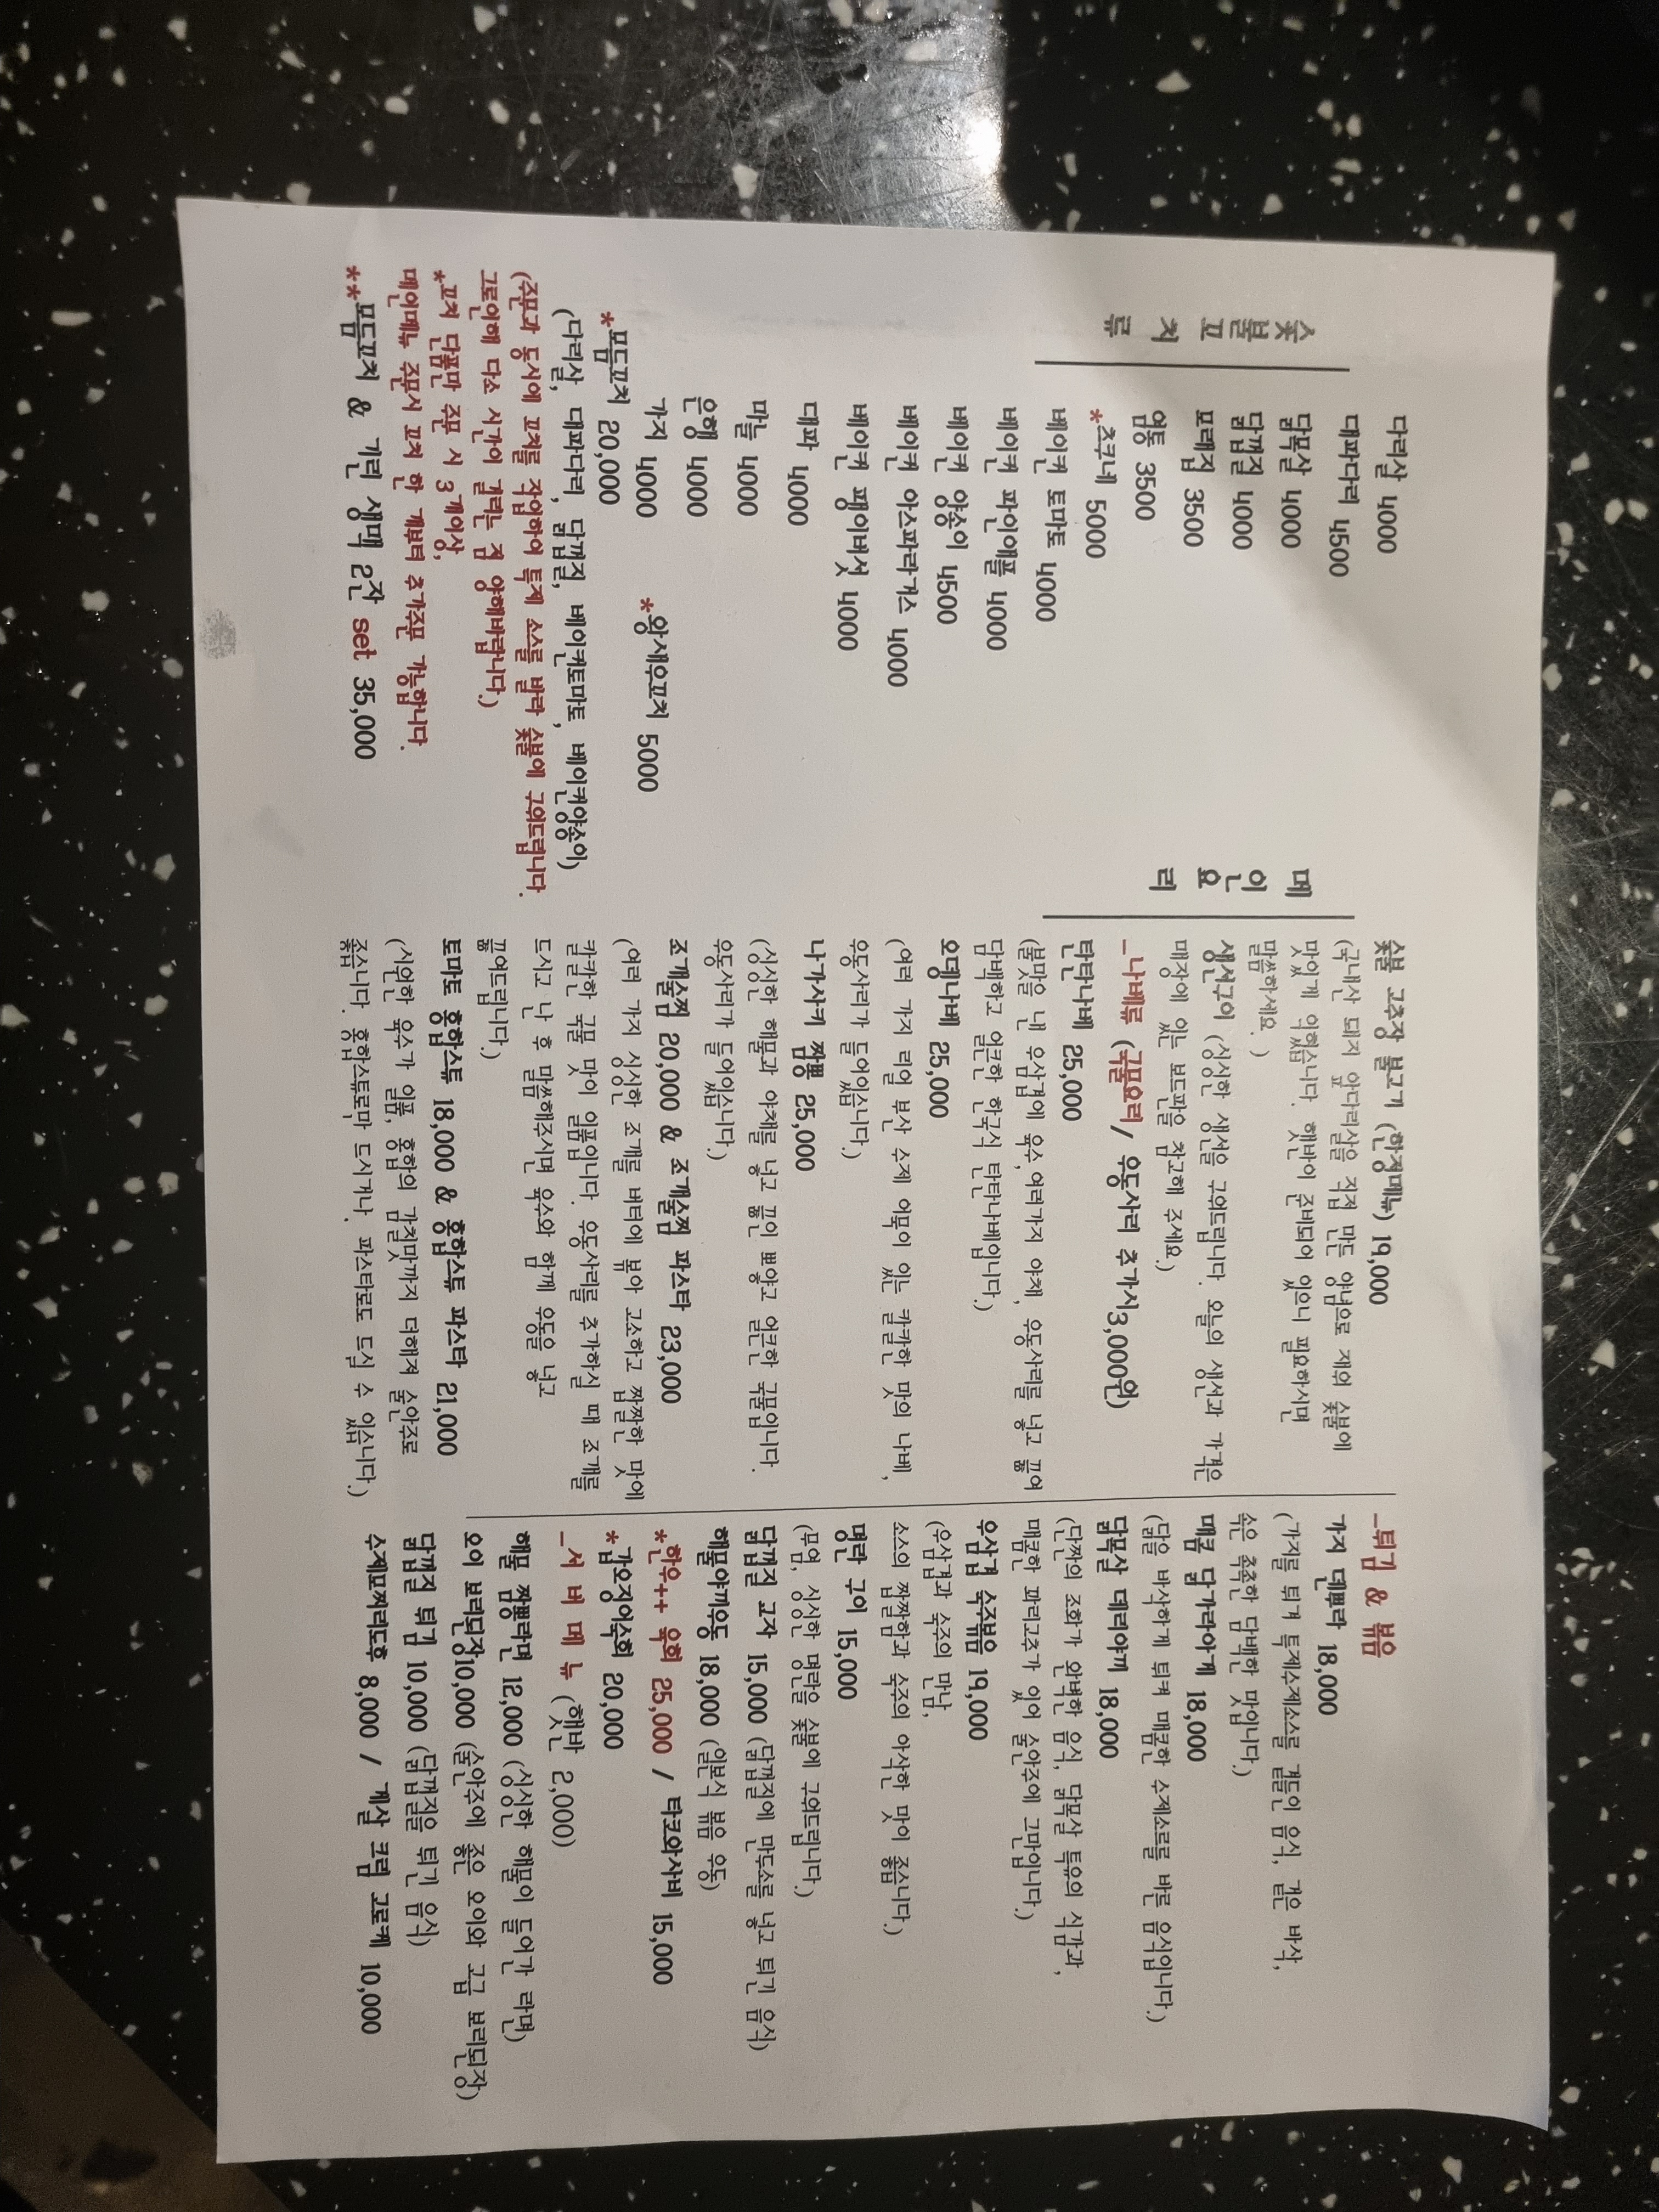 숯불꼬치류
다리살 4000
대파다리 4500
닭목살 4000
닭껍질 4000
포래집 3500
염통 3500
*츠쿠네 5000
베이컨 토마토 4000
베이컨 파인애플 4000
베이컨 양송이 4500
베이컨 아스파라거스 4000
베이컨 팽이버섯 4000
대파 4000
마늘 4000
은행 4000
가지 4000 *왕새우꼬치 5000
*모듬꼬치 20,000
(다리살, 대파다리, 닭껍질, 베이컨토마토, 베이컨양송이)
(주문과 동시에 꼬치를 작업하여 특제 소스를 발라 숯불에 구워드립니다.
그로인해 다소 시간이 걸리는 점 양해바랍니다.)
*꼬치 단품만 주문 시 3개이상,
메인메뉴 주문시 꼬치 한 개부터 추가주문 가능합니다.
**모듬꼬치 & 기린 생맥 2잔 set 35,000
메인요리
숯불 고추장 불고기 (한정메뉴) 19,000
(국내산 돼지 앞다리살을 직접 만든 양념으로 재워 숯불에
맛있게 익혔습니다. 햇반이 준비되어 있으니 필요하시면
말씀하세요. )
생선구이 (싱싱한 생선을 구워드립니다. 오늘의 생선과 가격은
매장에 있는 보드판을 참고해 주세요.)
_나베류 (국물요리/ 우동사리 추가시3,000원)
탄탄나베 25,000
(불맛을 낸 우삼겹에 육수,여러가지 야채, 우동사리를 넣고 끓여
담백하고 얼큰한 한국식 탄탄나베입니다.)
오뎅나베 25,000
(여러 가지 리얼 부산 수제 어묵이 있는 칼칼한 맛의 나베,
우동사리가 들어있습니다.)
나가사키 짬뽕 25,000
(싱싱한 해물과 야채를 넣고 끓인 뽀얗고 얼큰한 국물입니다.
우동사리가 들어있습니다.)
조개술찜 20,000 & 조개술찜 파스타 23,000
(여러 가지 싱싱한 조개를 버터에 볶아 고소하고 짭짤한 맛에
칼칼한 국물 맛이 일품입니다. 우동사리를 추가하실 때 조개를
드시고 난 후 말씀해주시면 육수와 함께 우동을 넣고
끓여드립니다.)
토마토 홍합스튜 18,000 & 홍합스튜 파스타 21,000
(시원한 육수가 일품, 홍합의 감칠맛까지 더해져 술안주로
좋습니다. 홍합스튜로만 드시거나, 파스타로도 드실 수 있습니다.)
_튀김 & 볶음
가지 덴뿌라 18,000
(가지를 튀겨 특제수제소스를 곁들인 음식, 겉은 바삭,
속은 촉촉한 담백한 맛입니다.)
매콤 닭가라아게 18,000
(닭을 바삭하게 튀겨 매콤한 수제소르를 바른 음식입니다.)
닭목살 데리야끼 18,000
(단짠의 조화가 완벽한 음식, 닭목살 특유의 식감과,
매콤한 꽈리고추가 있어 술안주에 그만입니다.)
우삼겹 숙주볶음 19,000
(우삼겹과 숙주의 만남,
소스의 짭짤함과 숙주의 아삭한 맛이 좋습니다.)
명란 구이 15,000
(무염, 싱싱한 명란을 숯불에 구워드립니다.)
닭껍질 교자 15,000 (닭껍질에 만두소를 넣고 튀긴 음식)
해물야끼우동 18,000 (일본식 볶음 우동)
*한우++ 육회 25,000 / 타코와사비 15,000
*갑오징어숙회 20,000
_서 버 메 뉴 (햇반 2,000)
해물 짬뽕라면 12,000 (싱싱한 해물이 들어간 라면)
오이 보리된장10,000 (술안주에 좋은 오이와 고급 보리된장)
닭껍질 튀김 10,000 (닭껍질을 튀긴 음식)
수제모찌리도후 8,000 / 게살 크림 고로케 10,000